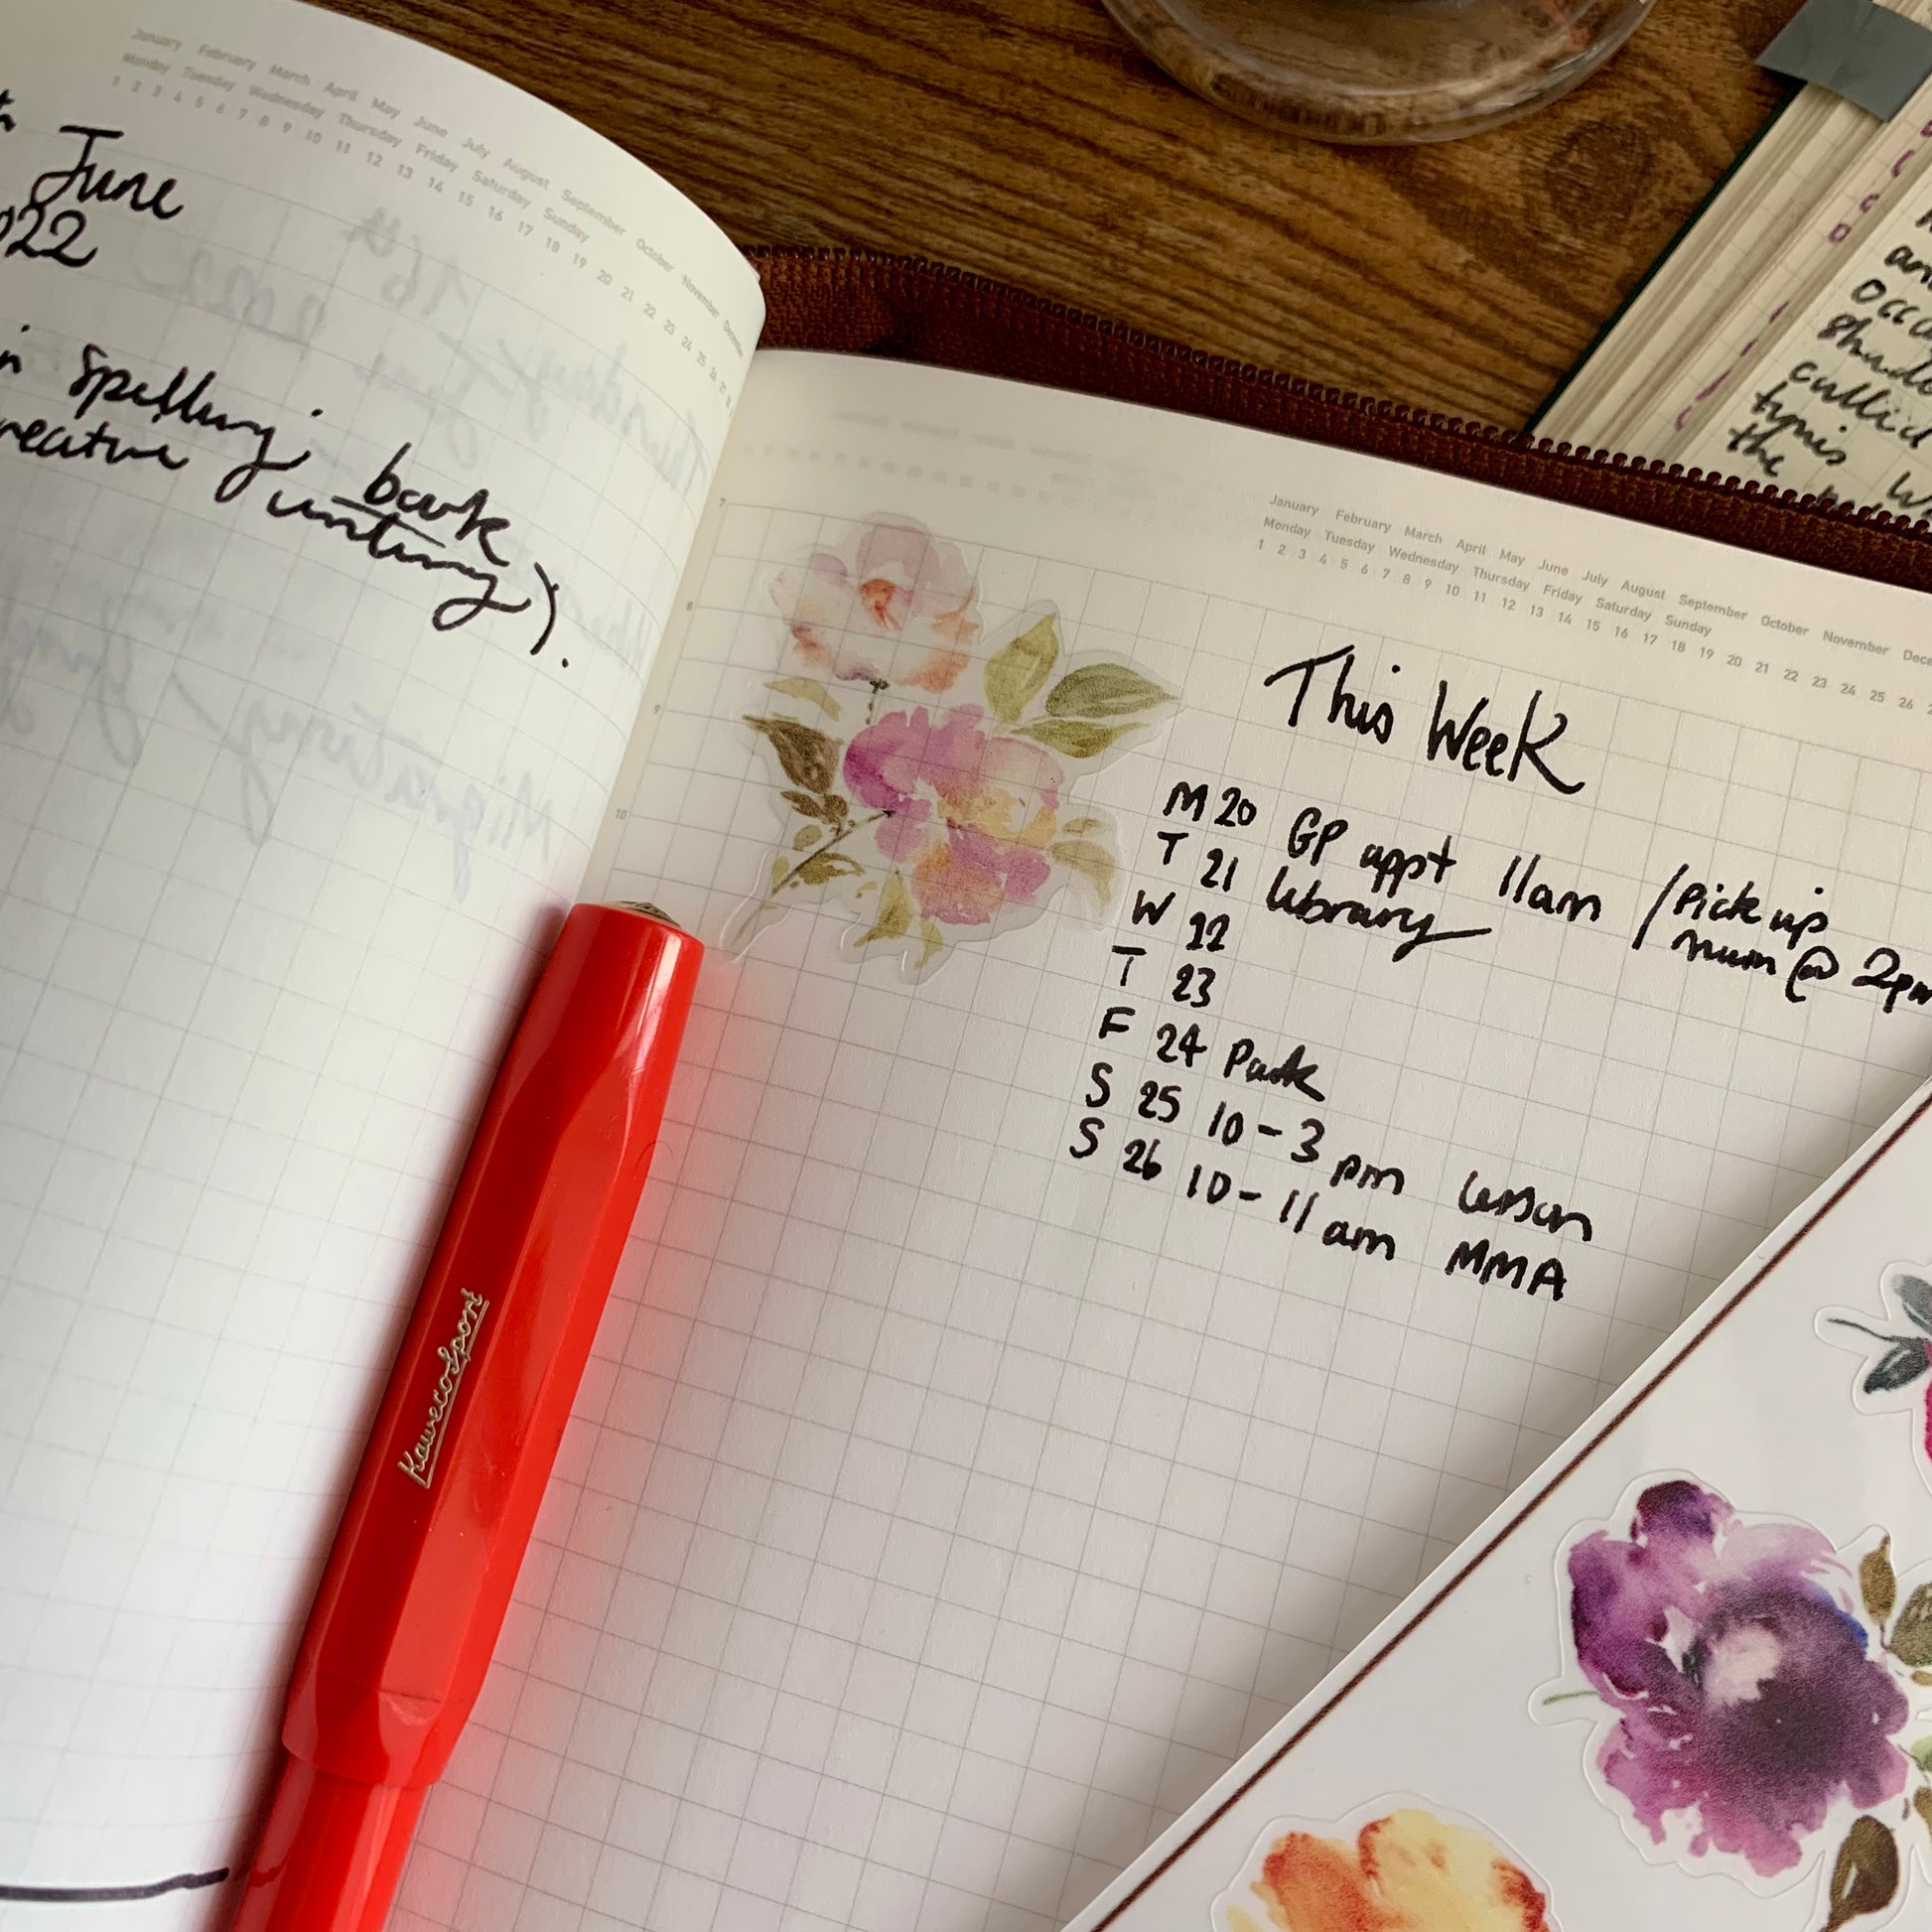 January February March April May June July August September October November December
Monday Tuesday Wednesday Thursday Friday Saturday Sunday
1 2 3 4 5 6 7 8 9 10 11 12 13 14 15 16 17 18 19 20 21 22 23 24 25 26
June
022
in spelling book
reative writing).
January February March April May June July August September October November Dece
Monday Tuesday Wednesday Thursday Friday Saturday Sunday
1 2 3 4 5 6 7 8 9 10 11 12 13 14 15 16 17 18 19 20 21 22 23 24 25 26
7
8
9
10
This Week
M 20 GP appt 11am / Pick up
mum @ 2pm
T 21 library
W 22
T 23
F 24 Park
S 25 10 - 3 pm lesson
S 26 10 - 11 am MMA
Kaweco Sport
the